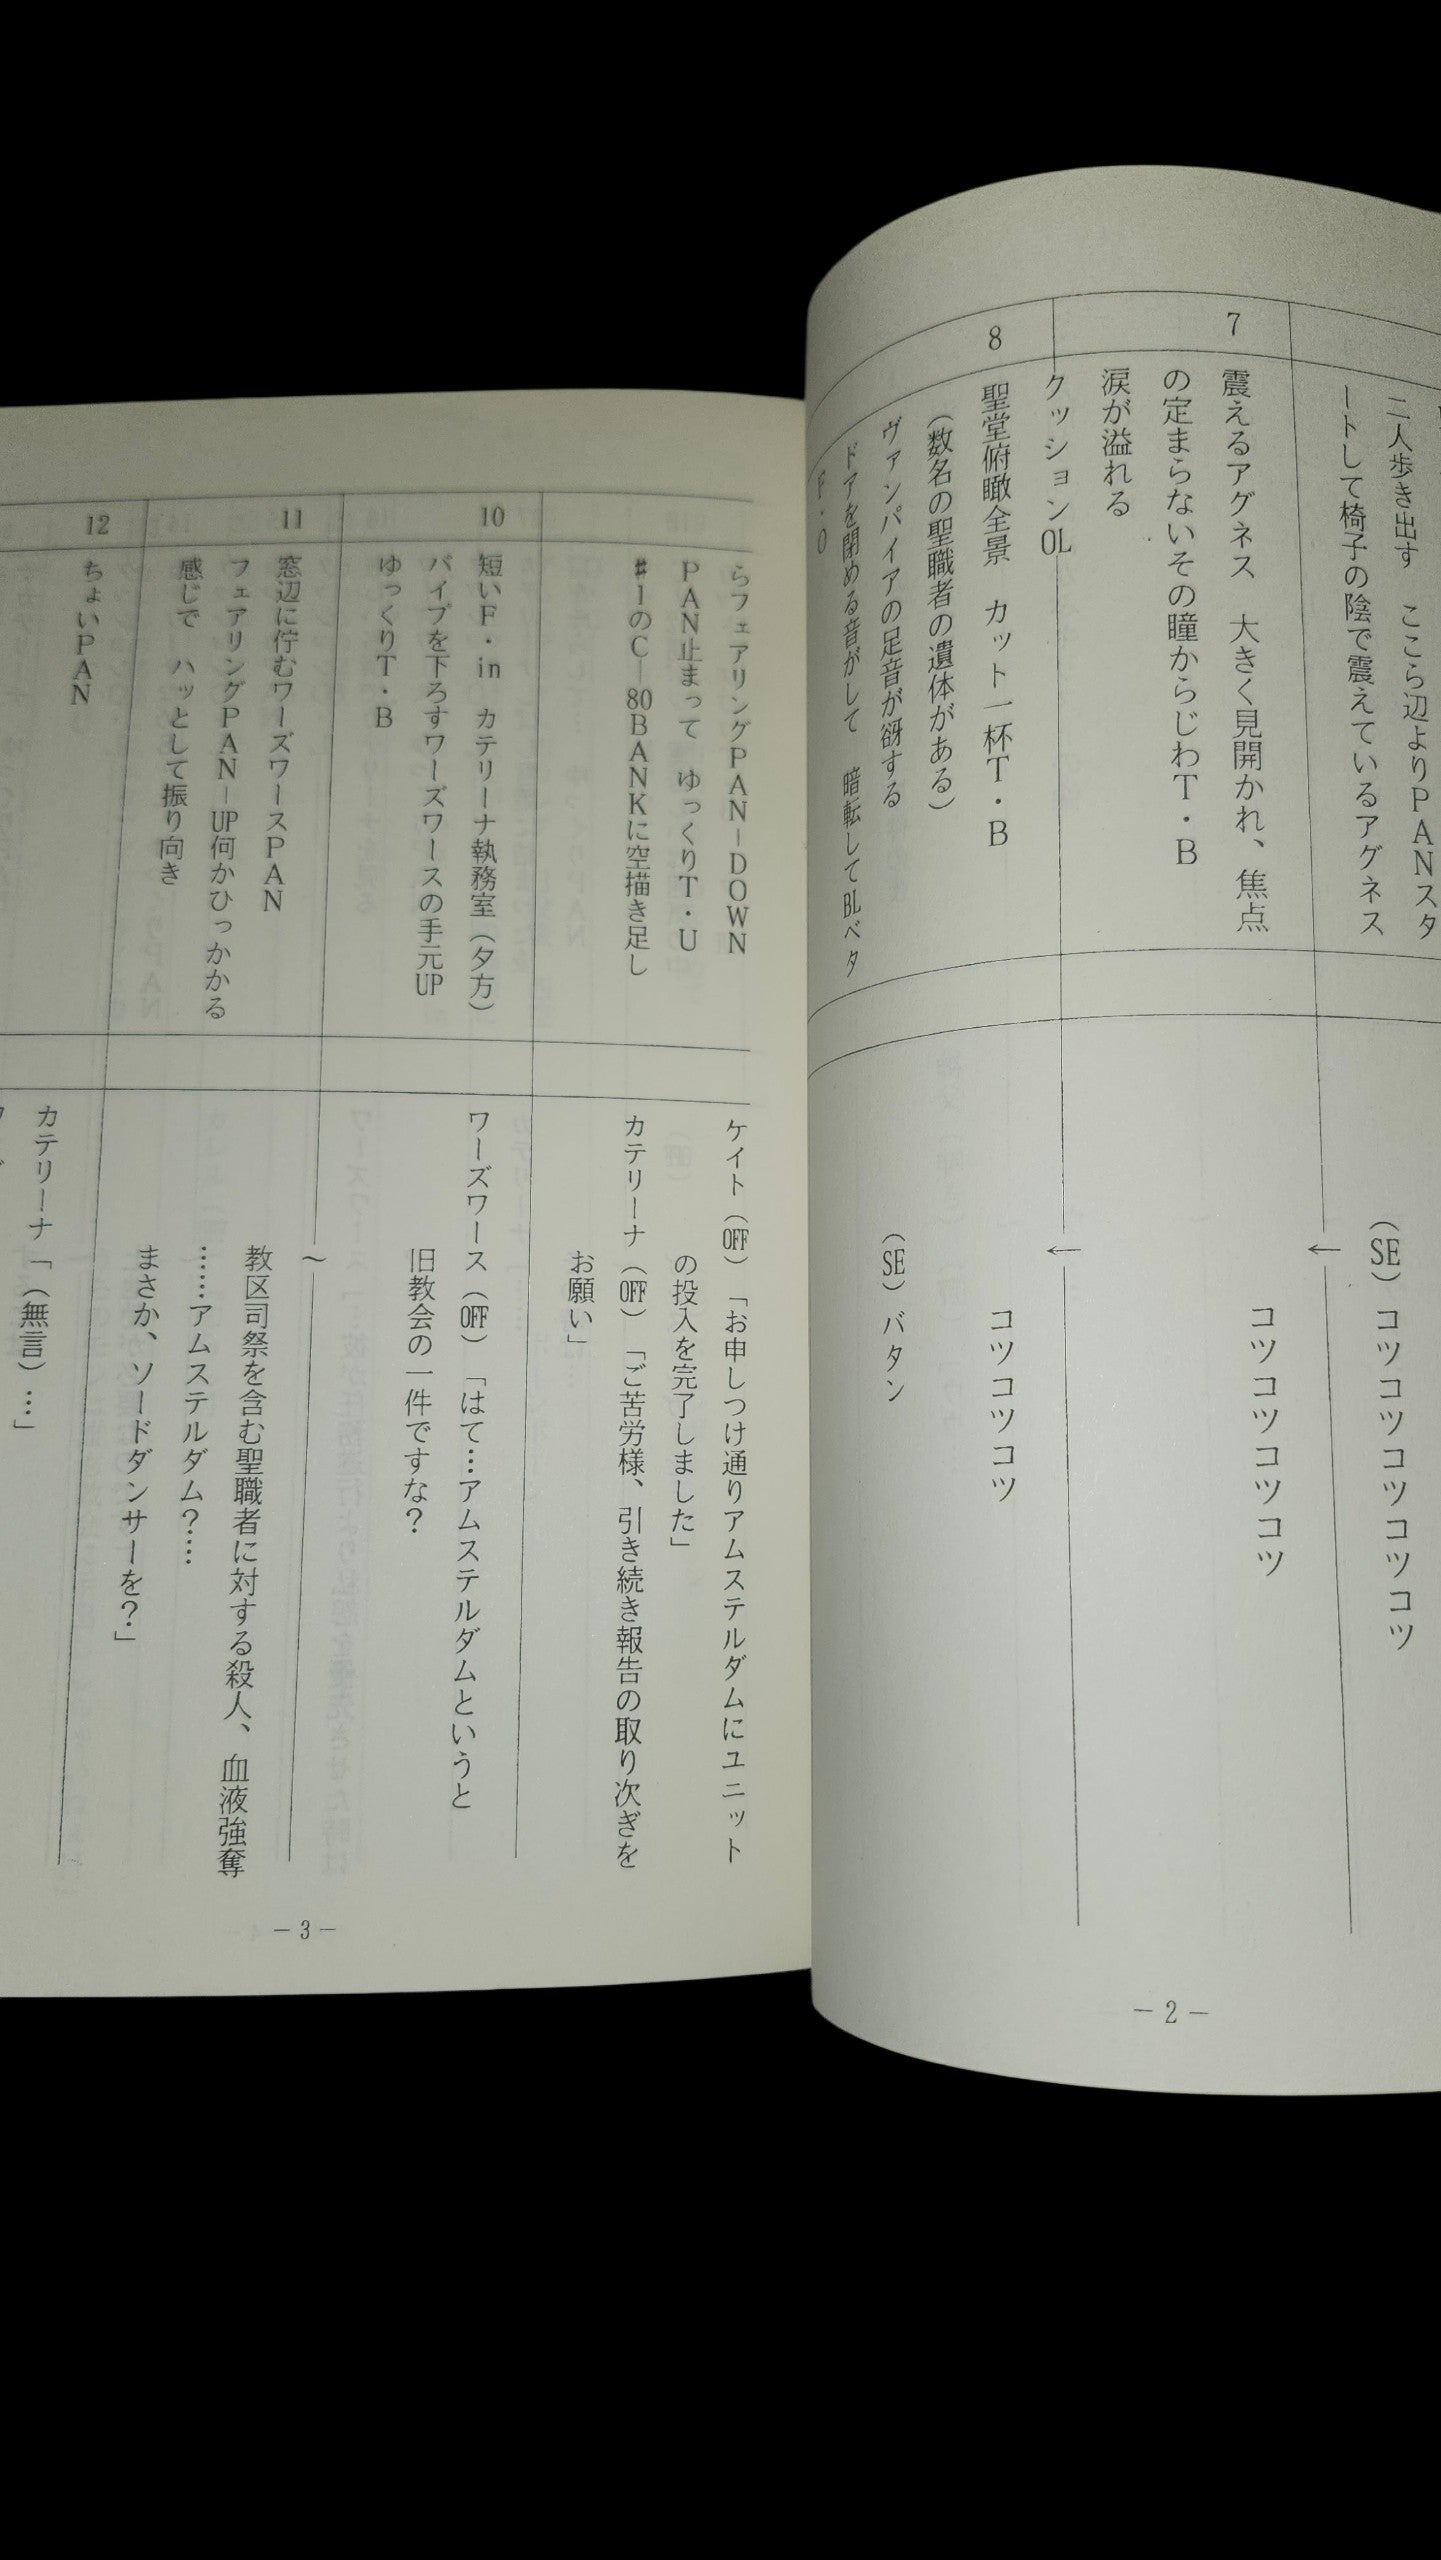 二人歩き出す　ここら辺よりPANスタ
ートして椅子の陰で震えているアグネス
(SE) コツコツコツコツコツ
←
7
震えるアグネス　大きく見開かれ、焦点
の定まらないその瞳からじわT・B
涙が溢れる
コツコツコツコツ
←
クッションOL
8
聖堂俯瞰全景　カット一杯T・B
(数名の聖職者の遺体がある)
ヴァンパイアの足音が谺する
ドアを閉める音がして　暗転してBLベタ
F・O
コツコツコツ
(SE) バタン
－2－
らフェアリングPAN－DOWN
PAN止まって　ゆっくりT・U
♯1のC－80BANKに空描き足し
ケイト(OFF)「お申しつけ通りアムステルダムにユニット
の投入を完了しました」
カテリーナ(OFF)「ご苦労様、引き続き報告の取り次ぎを
お願い」
10
短いF・in　カテリーナ執務室(夕方)
パイプを下ろすワーズワースの手元UP
ゆっくりT・B
ワーズワース(OFF)「はて…アムステルダムというと
旧教会の一件ですな？
～
11
窓辺に佇むワーズワースPAN
フェアリングPAN－UP何かひっかかる
感じで　ハッとして振り向き
教区司祭を含む聖職者に対する殺人、血液強奪
……アムステルダム？‥‥
まさか、ソードダンサーを？」
12
ちょいPAN
カテリーナ「(無言)…」
－3－